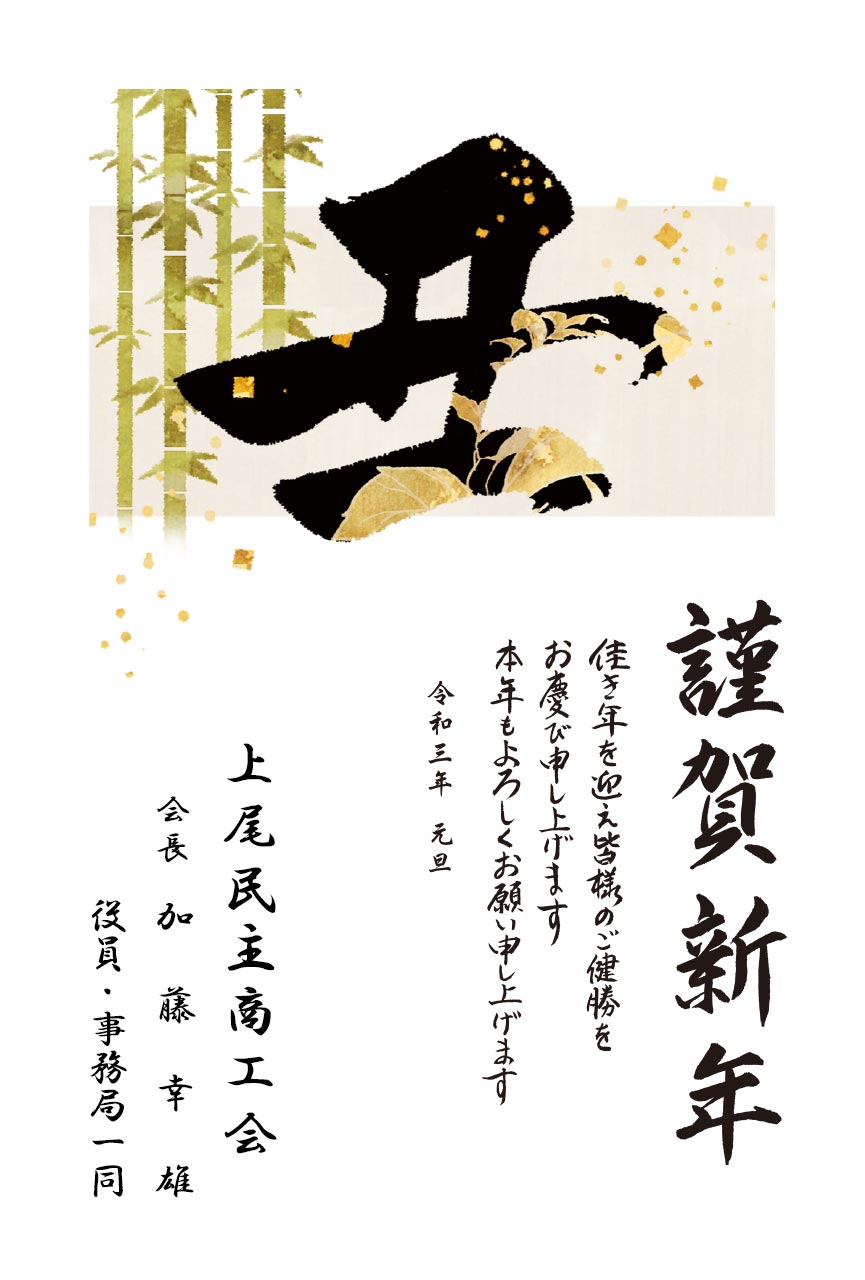 丑
謹賀新年
佳き年を迎え皆様のご健勝を
お慶び申し上げます
本年もよろしくお願い申し上げます
令和三年 元旦
上尾民主商工会
会長 加藤幸雄
役員・事務局一同